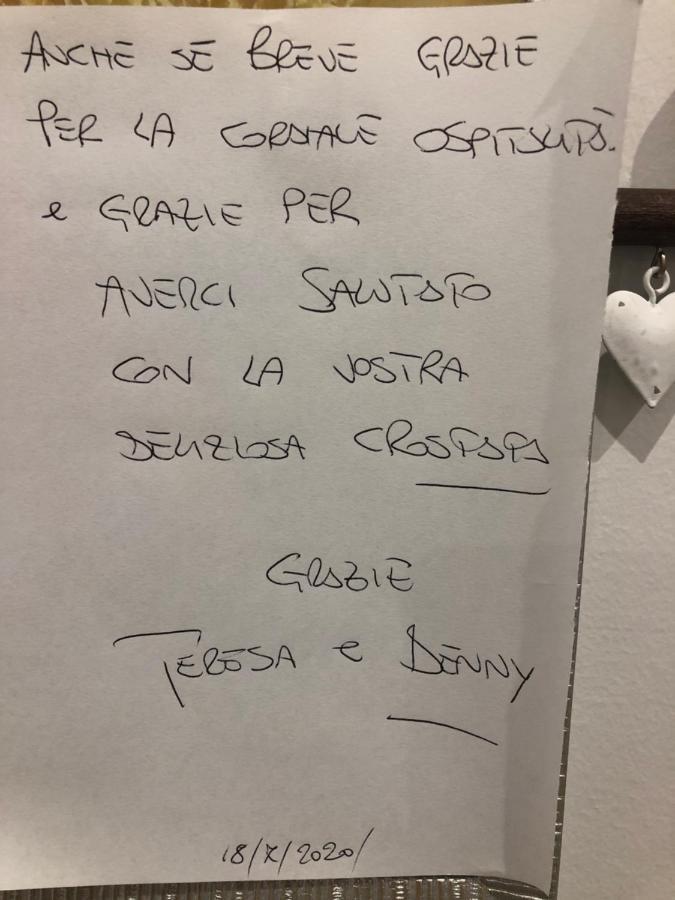 ANCHE SE BREVE GRAZIE
PER LA CORDIALE OSPITALITÀ.
e GRAZIE PER
AVERCI SALUTATO
CON LA VOSTRA
DELIZIOSA CROSTATA
GRAZIE
TERESA e DENNY
18/7/2020/